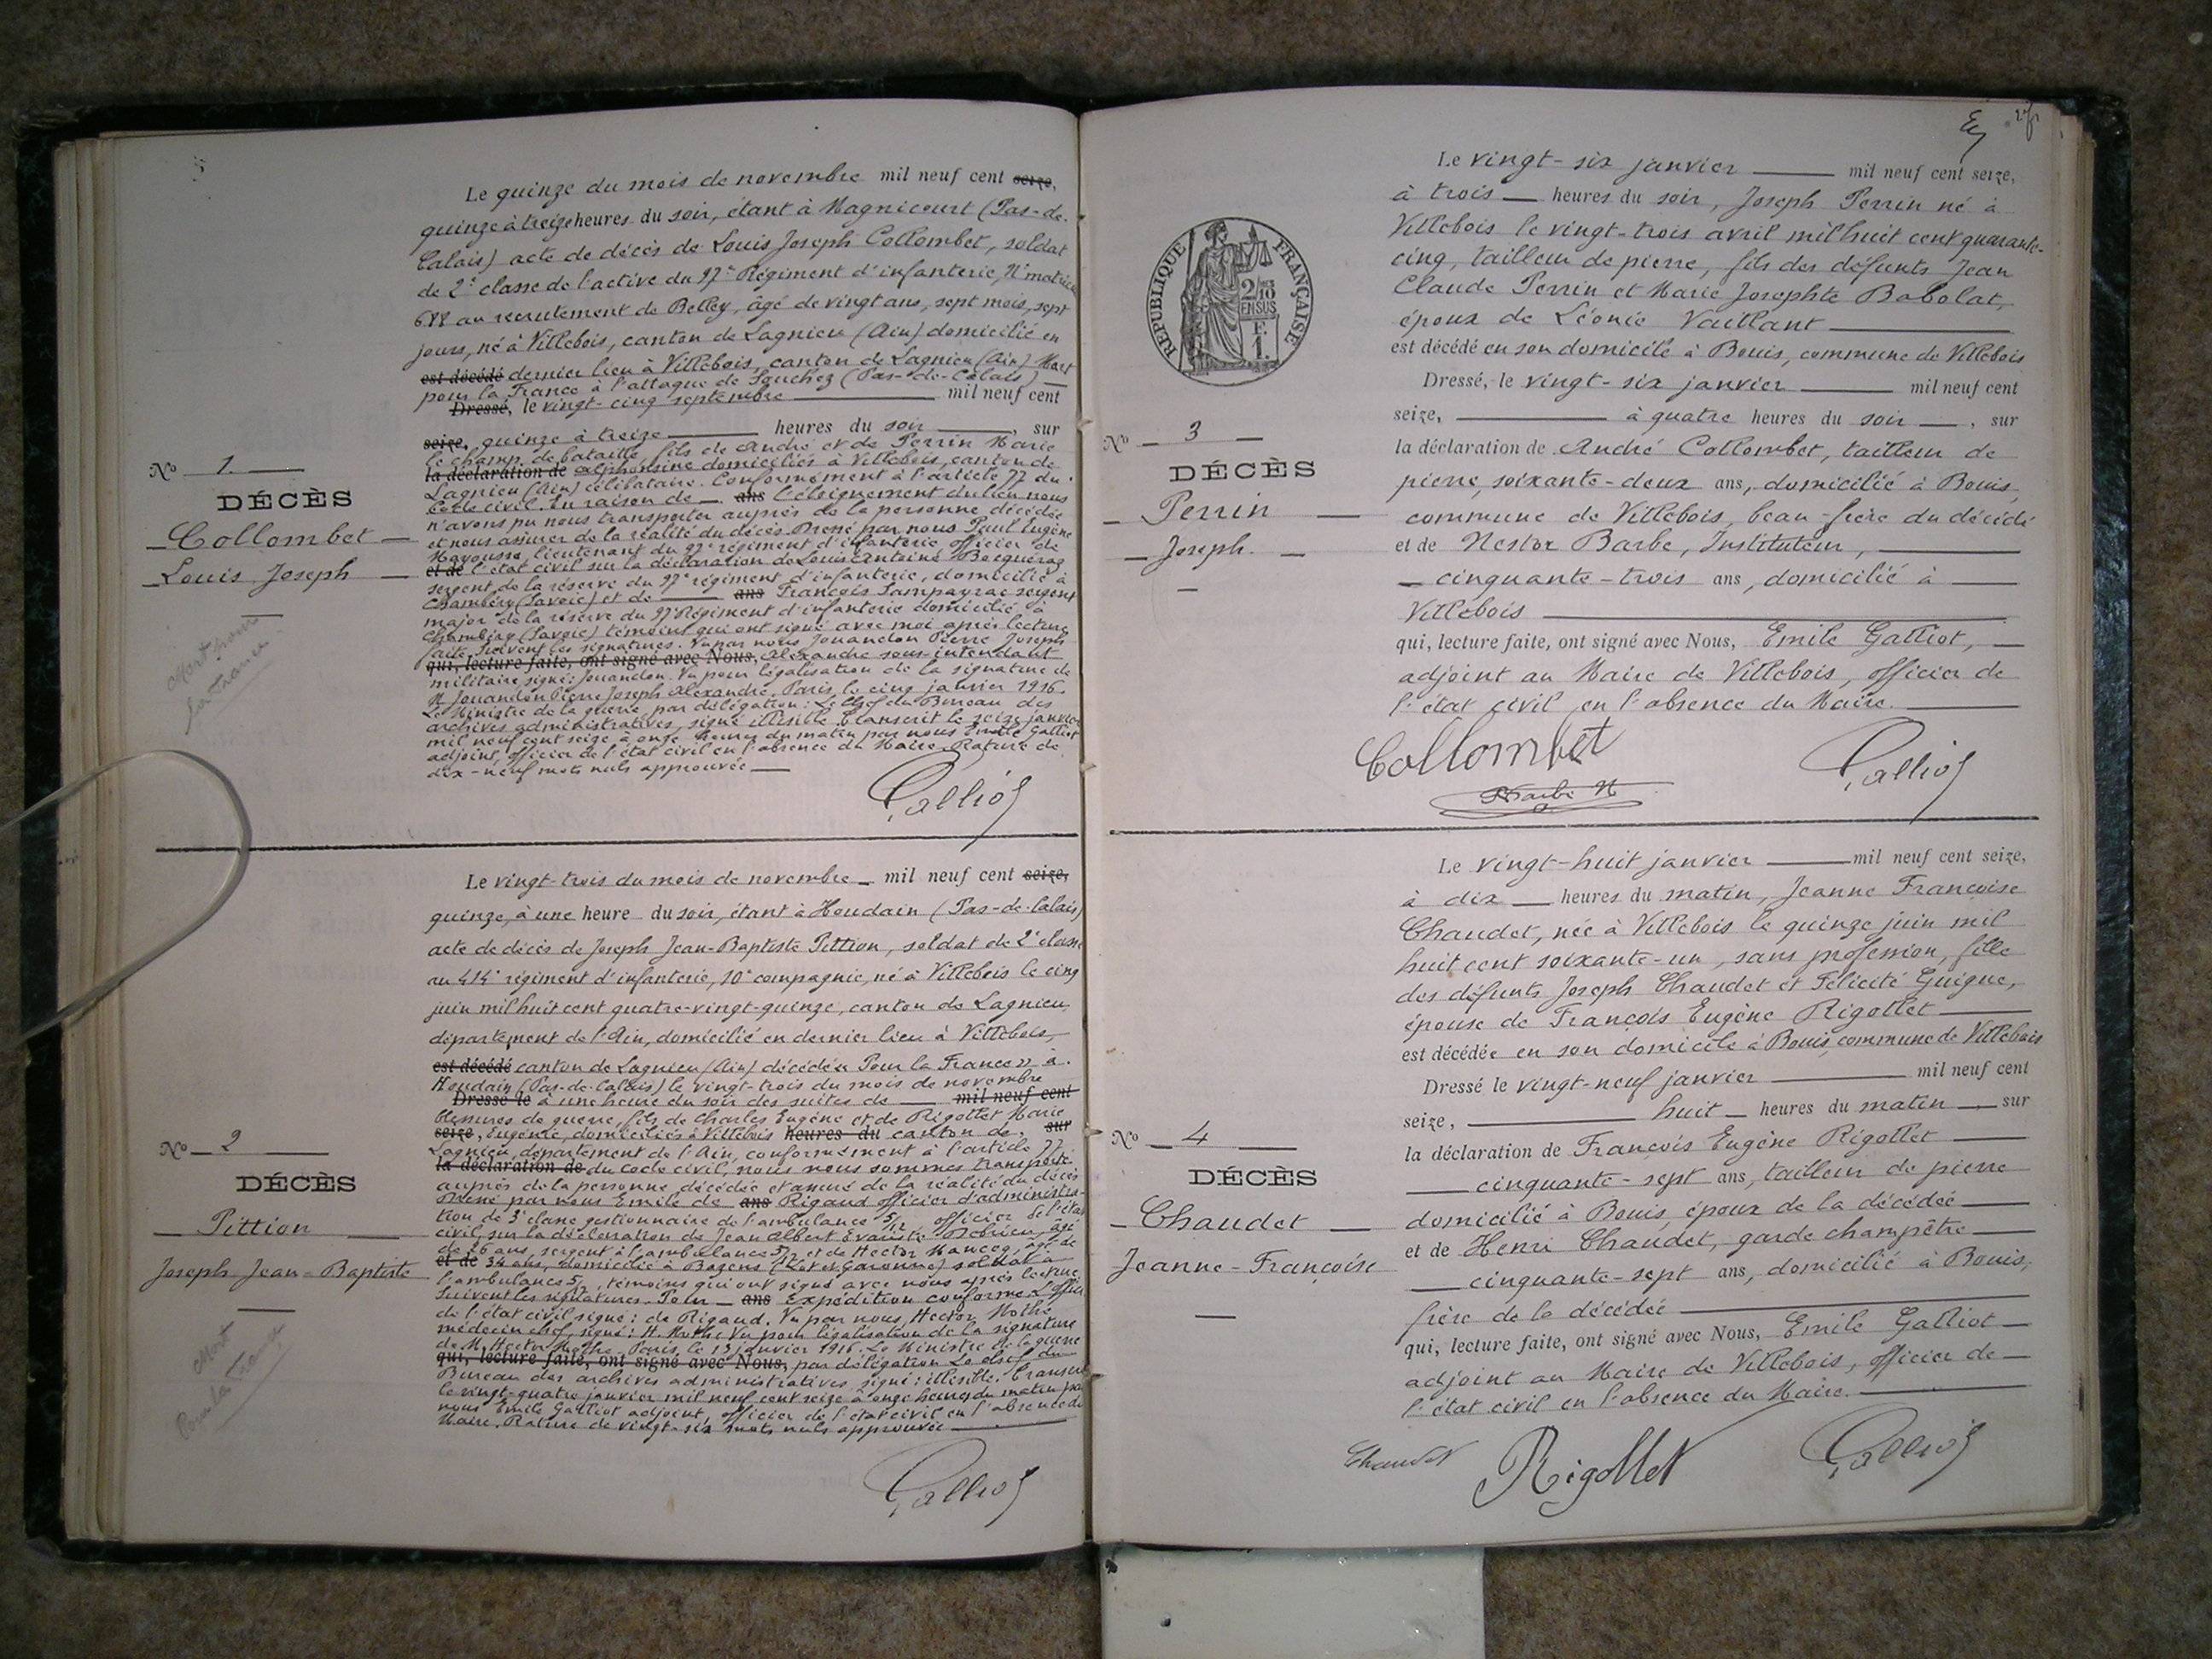 Le quinze du mois de novembre mil neuf cent seize,
quinze à treize heures du soir, étant à Magnicourt (Pas-de-
Calais) acte de décès de Louis Joseph Collombet, soldat
de 2e classe de l'active du 97e Régiment d'infanterie, No matricule
au recrutement de Belley, âgé de vingt ans, sept mois, sept
jours, né à Villebois, canton de Lagnieu (Ain) domicilié en
est décédé dernier lieu à Villebois, canton de Lagnieu (Ain) Mort
pour la France à l'attaque de Souchez (Pas-de-Calais)
Dressé, le vingt-cinq septembre mil neuf cent
seize, quinze à treize heures du soir, sur
le champ de bataille, fils de André et de Perrin Marie
la déclaration de alphonsine domiciliés à Villebois, canton de
Lagnieu (Ain) célibataire. Conformément à l'article 77 du
Code civil. En raison de ans l'éloignement du lieu nous
n'avons pu nous transporter auprès de la personne décédée
et nous assurer de la réalité du décès. Dressé par nous Paul Eugène
lieutenant du 97e régiment d'infanterie officier de
et de l'état civil sur la déclaration de Louis Antoine
sergent de la réserve du 97e régiment d'infanterie, domicilié à
Chambéry (Savoie) et de ans François Lampayrac sergent
major de la réserve du 97e Régiment d'infanterie domicilié à
Chambéry (Savoie) témoins qui ont signé avec moi après lecture
faite. Suivent les signatures. Vu par nous Jouandon Pierre Joseph
qui, lecture faite, ont signé avec Nous, Alexandre sous-intendant
militaire, signé: Jouandon. Vu pour légalisation de la signature de
M Jouandon Pierre Joseph Alexandre. Paris, le cinq janvier 1916.
Le Ministre de la guerre, par délégation: Le Chef du Bureau des
archives administratives, signé illisible. Transcrit le seize janvier
mil neuf cent seize à onze heures du matin par nous Emile Galliot
adjoint, officier de l'état civil en l'absence du Maire. Rature de
dix-neuf mots nuls approuvée
Galliot
No 1.
DÉCÈS
Collombet
Louis Joseph
Mort pour
la France
Le vingt-trois du mois de novembre mil neuf cent seize,
quinze, à une heure du soir, étant à Houdain (Pas-de-Calais)
acte de décès de Joseph Jean-Baptiste Pittion, soldat de 2e classe
au 414e régiment d'infanterie, 10e compagnie, né à Villebois le cinq
juin mil huit cent quatre-vingt-quinze, canton de Lagnieu,
département de l'Ain, domicilié en dernier lieu à Villebois,
est décédé canton de Lagnieu (Ain) décédé « Pour la France » à
Houdain (Pas-de-Calais) le vingt-trois du mois de novembre
Dressé le à une heure du soir des suites de mil neuf cent
blessures de guerre, fils de Charles Eugène et de Rigollet Marie
seize, Eugénie, domiciliés à Villebois heures du canton de sur
Lagnieu, département de l'Ain, conformément à l'article 77
la déclaration de du code civil, nous nous sommes transporté
auprès de la personne décédée et assuré de la réalité du décès
Dressé par nous Emile de ans Rigaud officier d'administra-
tion de 3e classe gestionnaire de l'ambulance 5/12, officier de l'état
civil, sur la déclaration de Jean Albert Evariste âgé
de 26 ans, sergent à l'ambulance 5/12 et de Hector Manceg, âgé de
et de 34 ans, domicilié à Bazens (Lot et Garonne) soldat à
l'ambulance 5/12, témoins qui ont signé avec nous après lecture
Suivent les signatures. Pour ans Expédition conforme L'officier
de l'état civil signé: de Rigaud. Vu par nous, Hector Mothe
médecin chef, signé: H. Mothe. Vu pour légalisation de la signature
de M. Hector Mothe. Paris, le 13 janvier 1916. Le Ministre de la guerre
qui, lecture faite, ont signé avec Nous, par délégation Le chef du
Bureau des archives administratives signé: illisible. Transcrit
le vingt-quatre janvier mil neuf cent seize à onze heures du matin par
nous Emile Galliot adjoint, officier de l'état civil en l'absence du
Maire. Rature de vingt-six mots nuls approuvée
Galliot
No 2
DÉCÈS
Pittion
Joseph Jean-Baptiste
Mort
Pour la France
RÉPUBLIQUE FRANÇAISE
2/10
EN SUS
F.
1.
Le vingt-six janvier mil neuf cent seize,
à trois heures du soir, Joseph Perrin né à
Villebois le vingt-trois avril mil huit cent quarante-
cinq, tailleur de pierre, fils des défunts Jean
Claude Perrin et Marie Josephte Babolat,
époux de Léonie Vaillant
est décédé en son domicile à Bouis, commune de Villebois
Dressé, le vingt-six janvier mil neuf cent
seize, à quatre heures du soir, sur
la déclaration de André Collombet, tailleur de
pierre, soixante-deux ans, domicilié à Bouis,
commune de Villebois, beau-frère du décédé
et de Nestor Barbe, Instituteur,
cinquante-trois ans, domicilié à
Villebois
qui, lecture faite, ont signé avec Nous, Emile Galliot,
adjoint au Maire de Villebois, officier de
l'état civil en l'absence du Maire.
Collombet
Barbe N
Galliot
No 3
DÉCÈS
Perrin
Joseph.
Le vingt-huit janvier mil neuf cent seize,
à dix heures du matin, Jeanne Françoise
Chaudet, née à Villebois le quinze juin mil
huit cent soixante-un, sans profession, fille
des défunts Joseph Chaudet et Félicité Guigue,
épouse de François Eugène Rigollet
est décédée en son domicile à Bouis, commune de Villebois
Dressé le vingt-neuf janvier mil neuf cent
seize, huit heures du matin, sur
la déclaration de François Eugène Rigollet
cinquante-sept ans, tailleur de pierre
domicilié à Bouis, époux de la décédée
et de Henri Chaudet, garde champêtre
cinquante-sept ans, domicilié à Bouis,
frère de la décédée
qui, lecture faite, ont signé avec Nous, Emile Galliot
adjoint au Maire de Villebois, officier de
l'état civil en l'absence du Maire.
Chaudet
Rigollet
Galliot
No 4
DÉCÈS
Chaudet
Jeanne-Françoise